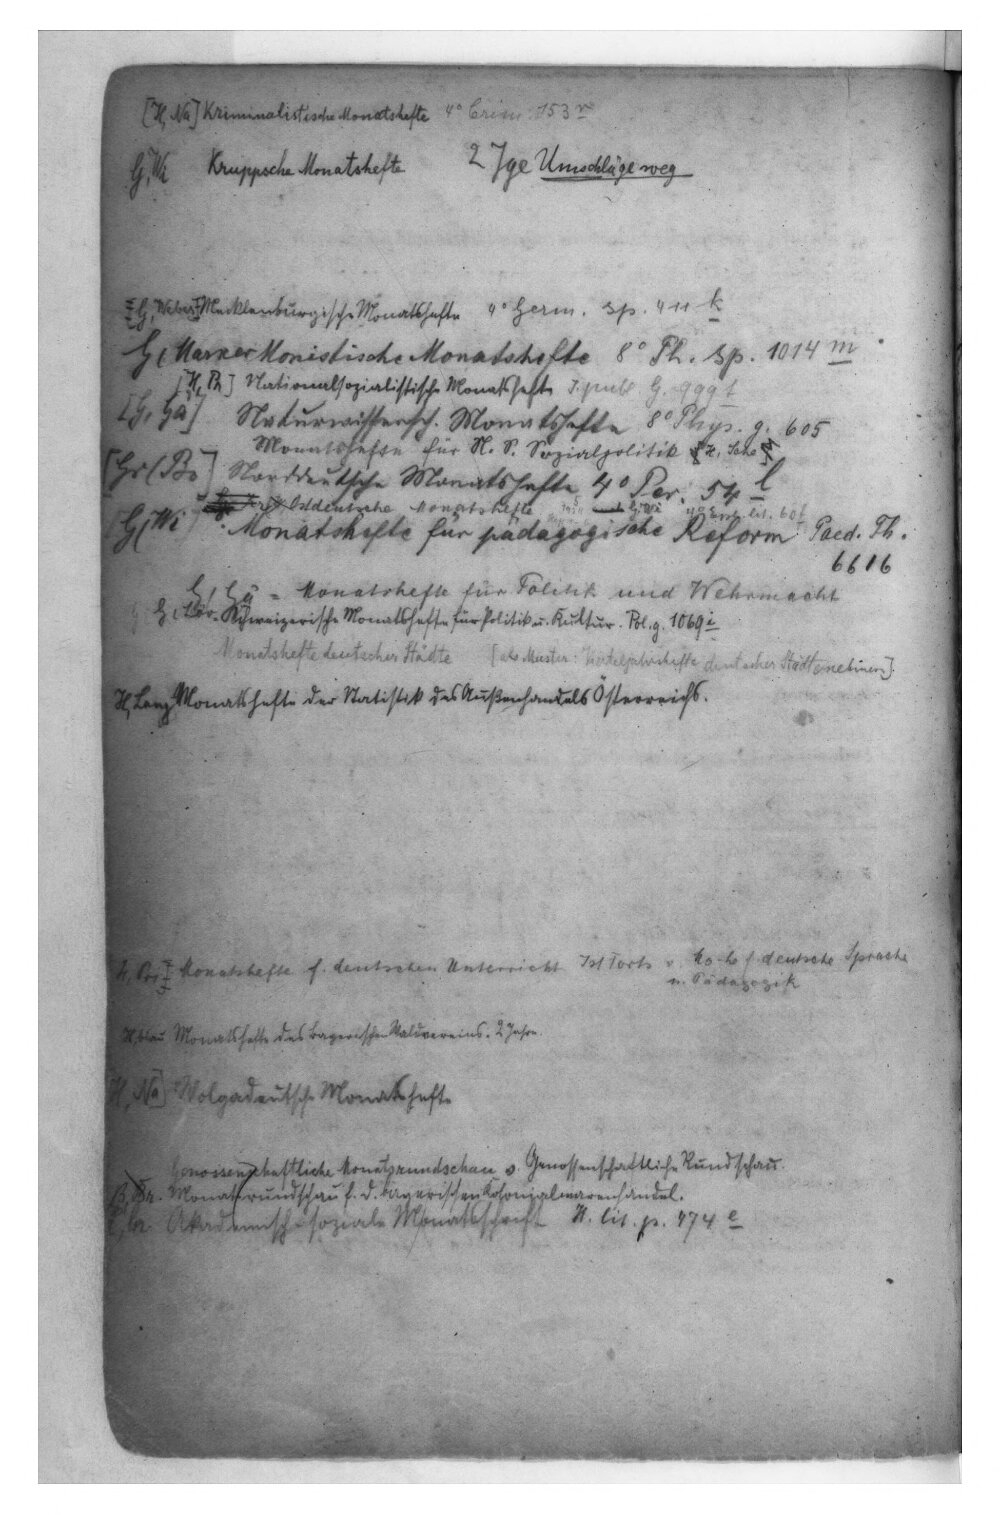 [H, Na] Kriminalistische Monatshefte 4° Crim. 153 r
G, Wi Kruppsche Monatshefte 2 Jge Umschläge weg
G, Weber Mecklenburgische Monatshefte 4° Germ. sp. 411 k
G, Marner Monistische Monatshefte 8° Ph. sp. 1014 m
[H, Ph] Nationalsozialistische Monatshefte J. publ. G. 999 t
[G, Gä] Naturwissensch. Monatshefte 8° Phys. g. 605
Monatshefte für N. S. Sozialpolitik H,
[Gr (Bo] Norddeutsche Monatshefte 4° Per. 54 l
Ostdeutsche Monatshefte G, Wi 4° lit. 60 f
[G (Wi] Monatshefte für pädagogische Reform Paed. Th.
6616
G, Gä = Monatshefte für Politik und Wehrmacht
G, Schweizerische Monatshefte für Politik u. Kultur. Pol. g. 1069 i
Monatshefte deutscher Städte [als Muster: Vierteljahrshefte deutscher Städte nehmen].
H, Lang Monatshefte der Statistik des Außenhandels Österreichs.
Monatshefte f. deutschen Unterricht Ist Forts v. Mo-he f. deutsche Sprache
u. Pädagogik
H, blau Monatshefte des bayerischen Waldvereins. 2 Jahre.
H, Na] Wolgadeutsche Monatshefte
Genossenschaftliche Monatsrundschau v. Genossenschaftliche Rundschau.
Monatsrundschau f. d. bayerischen Kolonialwarenhandel.
Akademisch-soziale Monatsschrift H. lit. p. 474 e